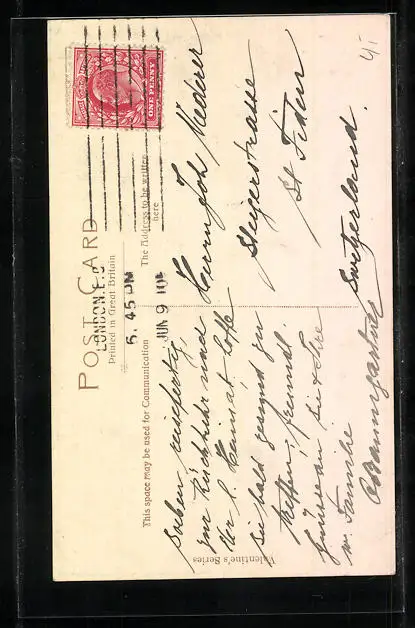 POST CARD
Printed in Great Britain
This space may be used for Communication
The Address to be written
here
LONDON. E.C
5.45 PM
JUN 9 10
ONE PENNY
4/-
Soeben reisefertig
zur Rückkehr nach
der l. Heimat hoffe
Sie bald gesund zu
treffen, freundl.
Grüsse an Sie & Ihre
w. Familie
Baumgartner
Herrn Joh. Mederer
Steigerstrasse
St. Fiden
Switzerland.
Valentine's Series